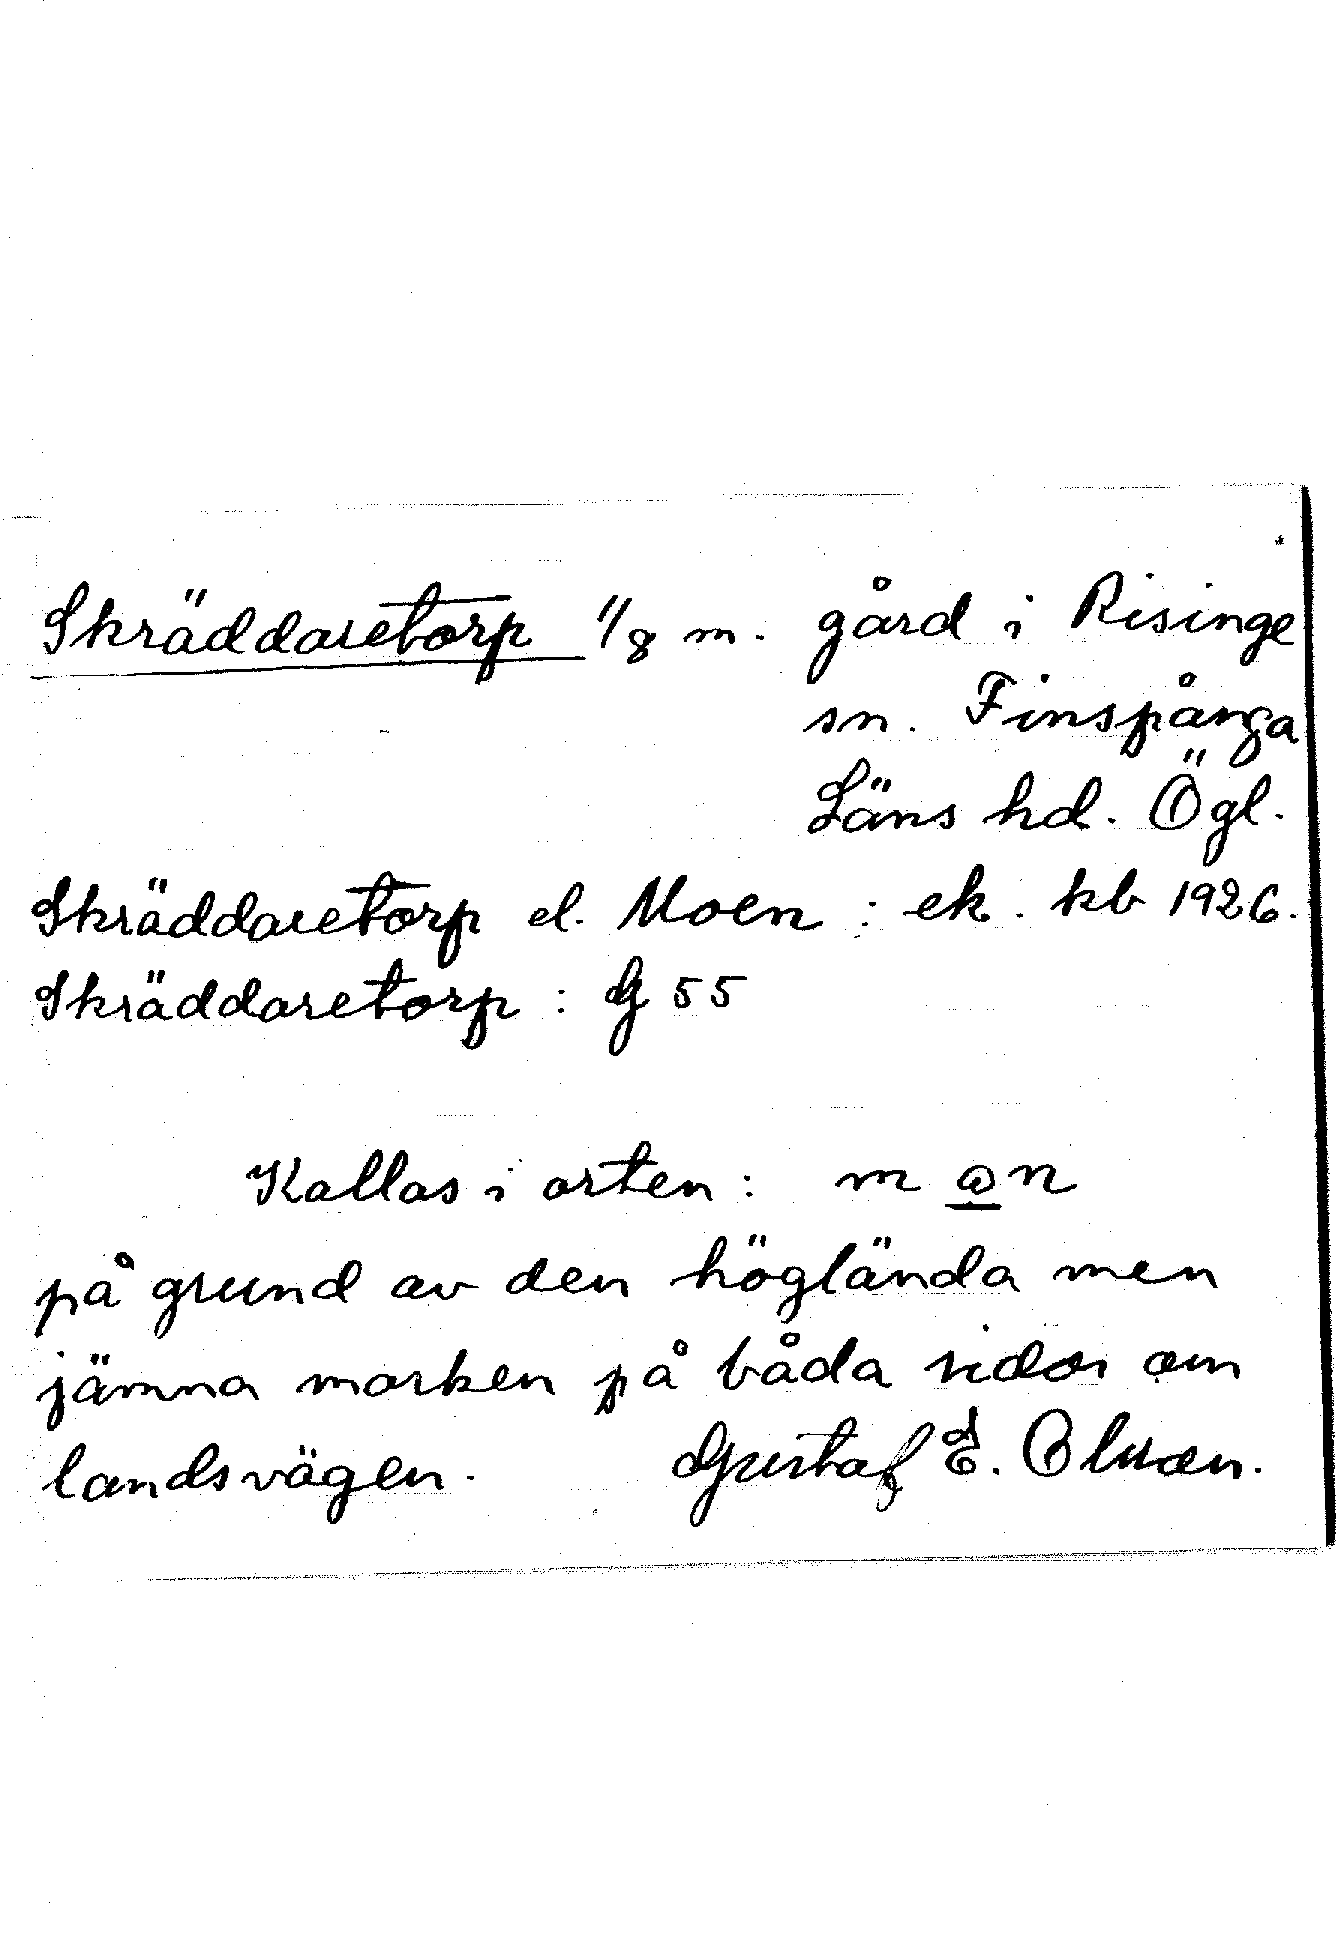 Skräddaretorp 1/8 m. gård i Risinge
sn. Finspånga
Läns hd. Ögl.
Skräddaretorp el. Moen : ek. kb 1926.
Skräddaretorp : G 55
Kallas i orten : m n
på grund av den höglända men
jämna marken på båda sidor om
landsvägen. Gustaf E. Olsson.